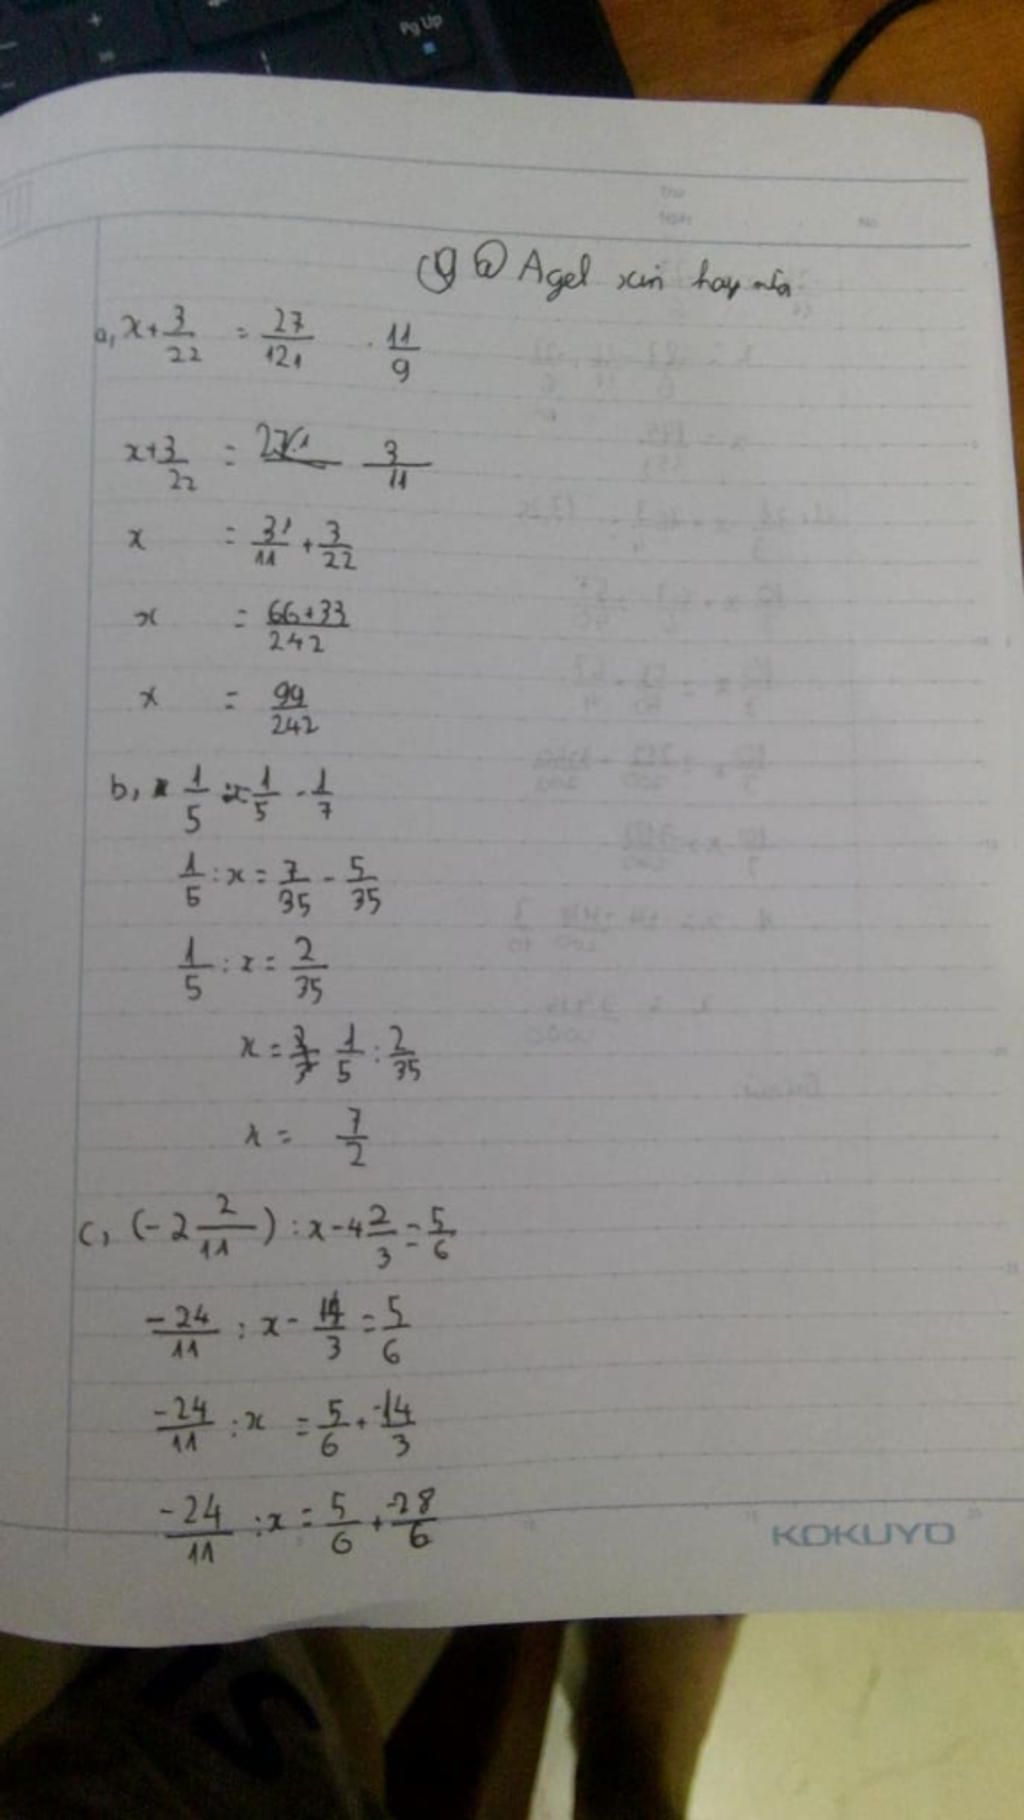 Pg Up
Agel xin hay nữa
a, x + 3/22 = 27/121 . 11/9
x + 3/22 = 3/11
x = 3/11 + 3/22
x = 66+33/242
x = 99/242
b, 1/5 : x = 1/5 - 1/7
1/5 : x = 7/35 - 5/35
1/5 : x = 2/35
x = 1/5 : 2/35
x = 7/2
c, (-2 2/11) : x - 4 2/3 = 5/6
-24/11 : x - 14/3 = 5/6
-24/11 : x = 5/6 + -14/3
-24/11 : x = 5/6 + -28/6
KOKUYO